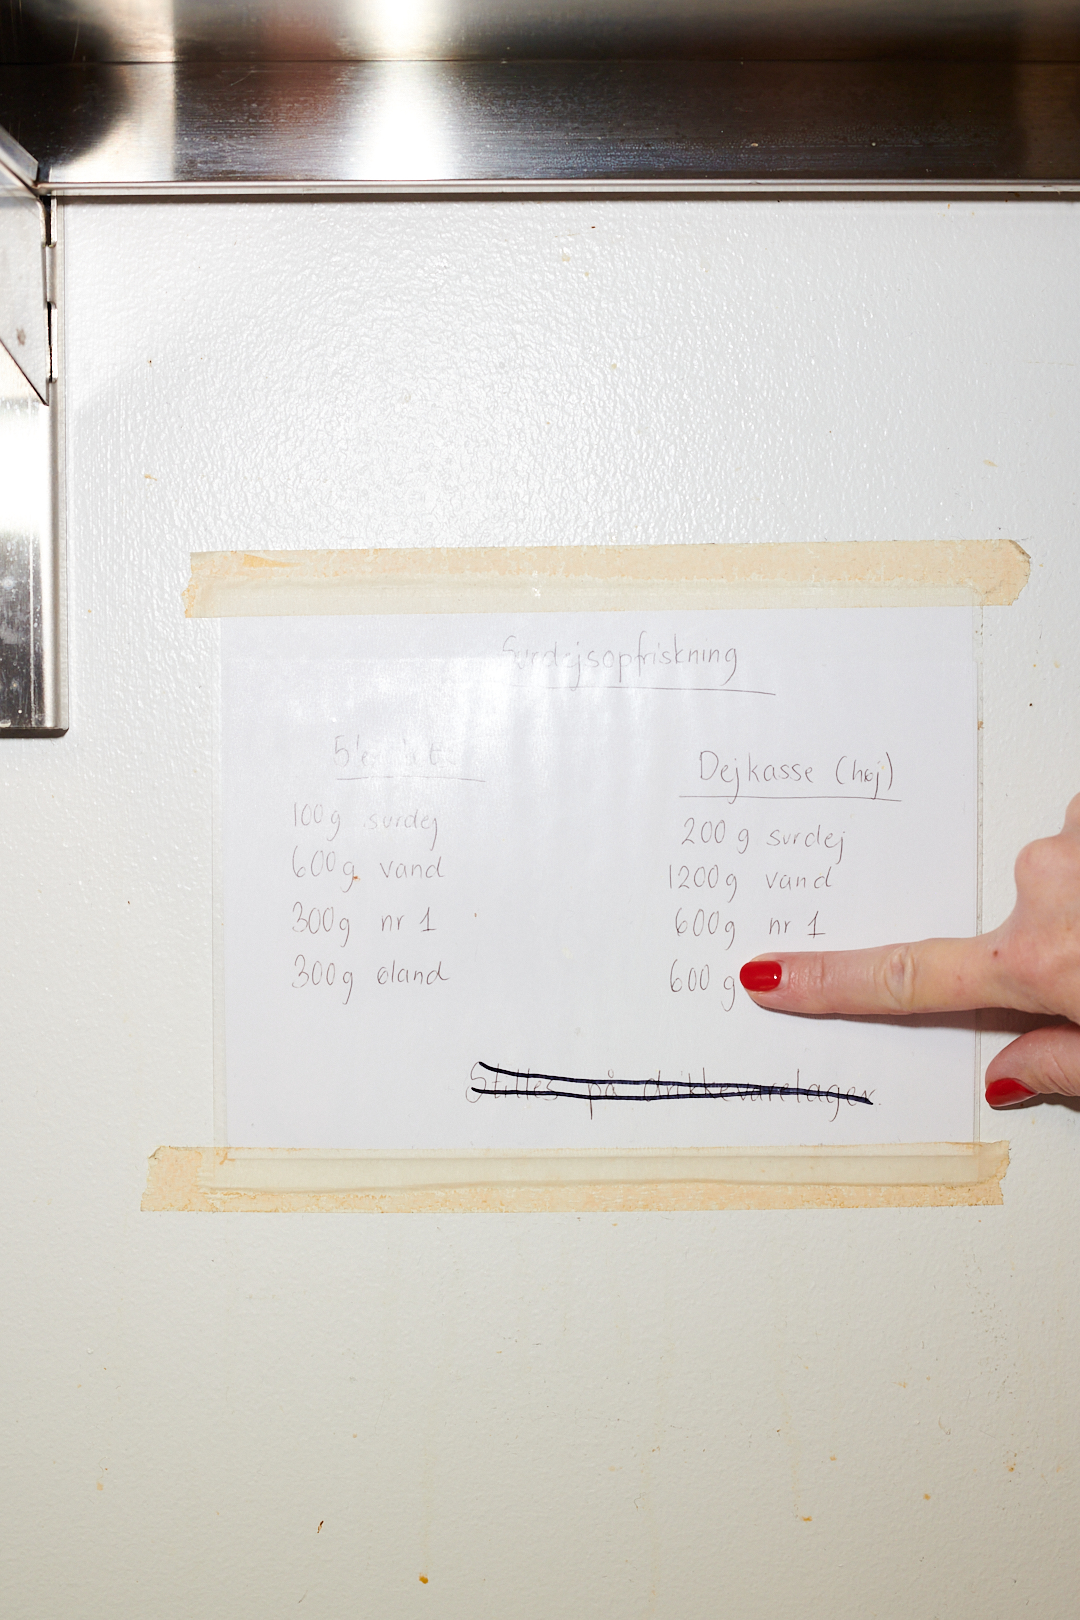 Surdejsopfriskning
100g surdej
600g vand
300g nr 1
300g øland
Dejkasse (høj)
200 g surdej
1200g vand
600g nr 1
600 g
Stilles på drikkevarelager